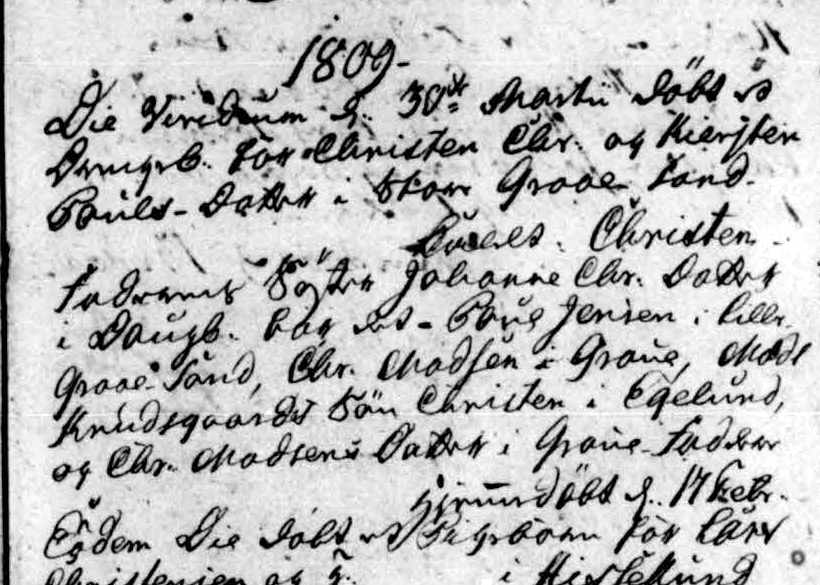 1809-
Die Viridium d. 30te Martii döbt et
Drengeb. for Christen Chr. og Kiersten
Pouls-Datter i Store Graae Sand.
Kaldt. Christen
Faderens Söster Johanne Chr. Datter
i Daugb. bar det - Poul Jensen i Lille
Graae-Sand, Chr. Madsen i Graae, Mads
Knudsgaards Sön Christen i Egelund,
og Chr. Madsens Datter i Graae Faddere
Hjemmedöbt d. 17 Febr.
Eodem Die döbt et Pigebörn for Lars
Christensen og i